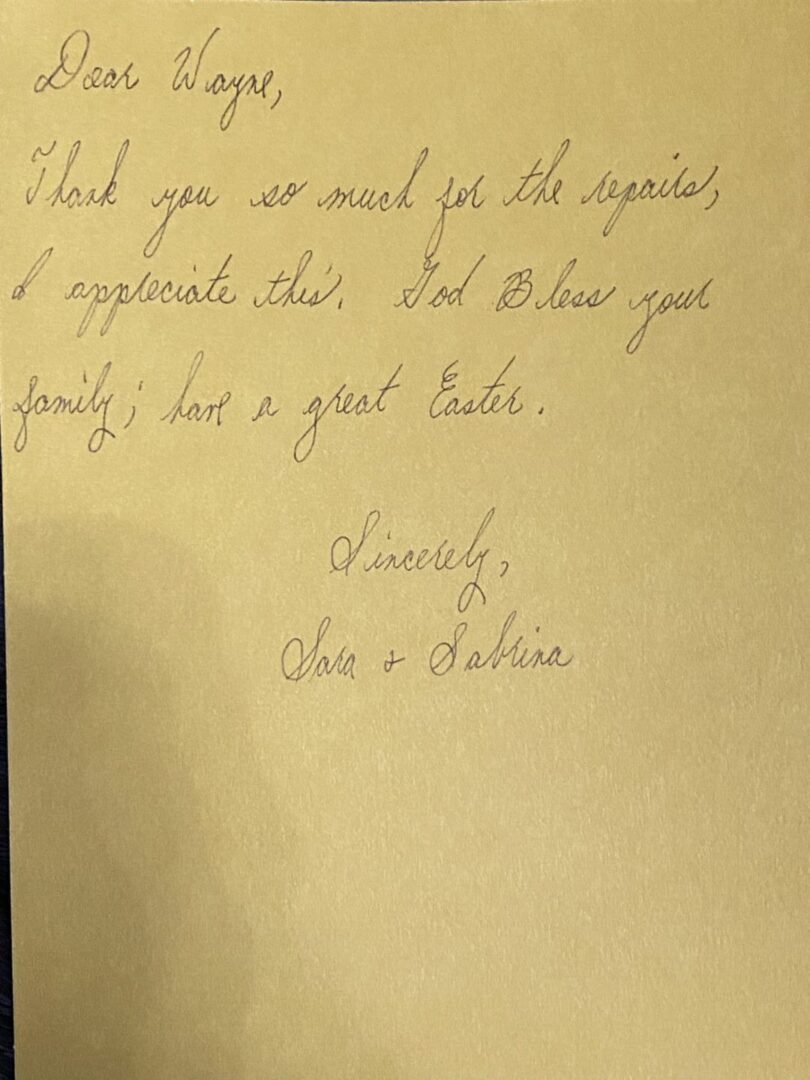 Dear Wayne,
Thank you so much for the repairs,
I appreciate this. God Bless your
family; have a great Easter.
Sincerely,
Sara & Sabrina